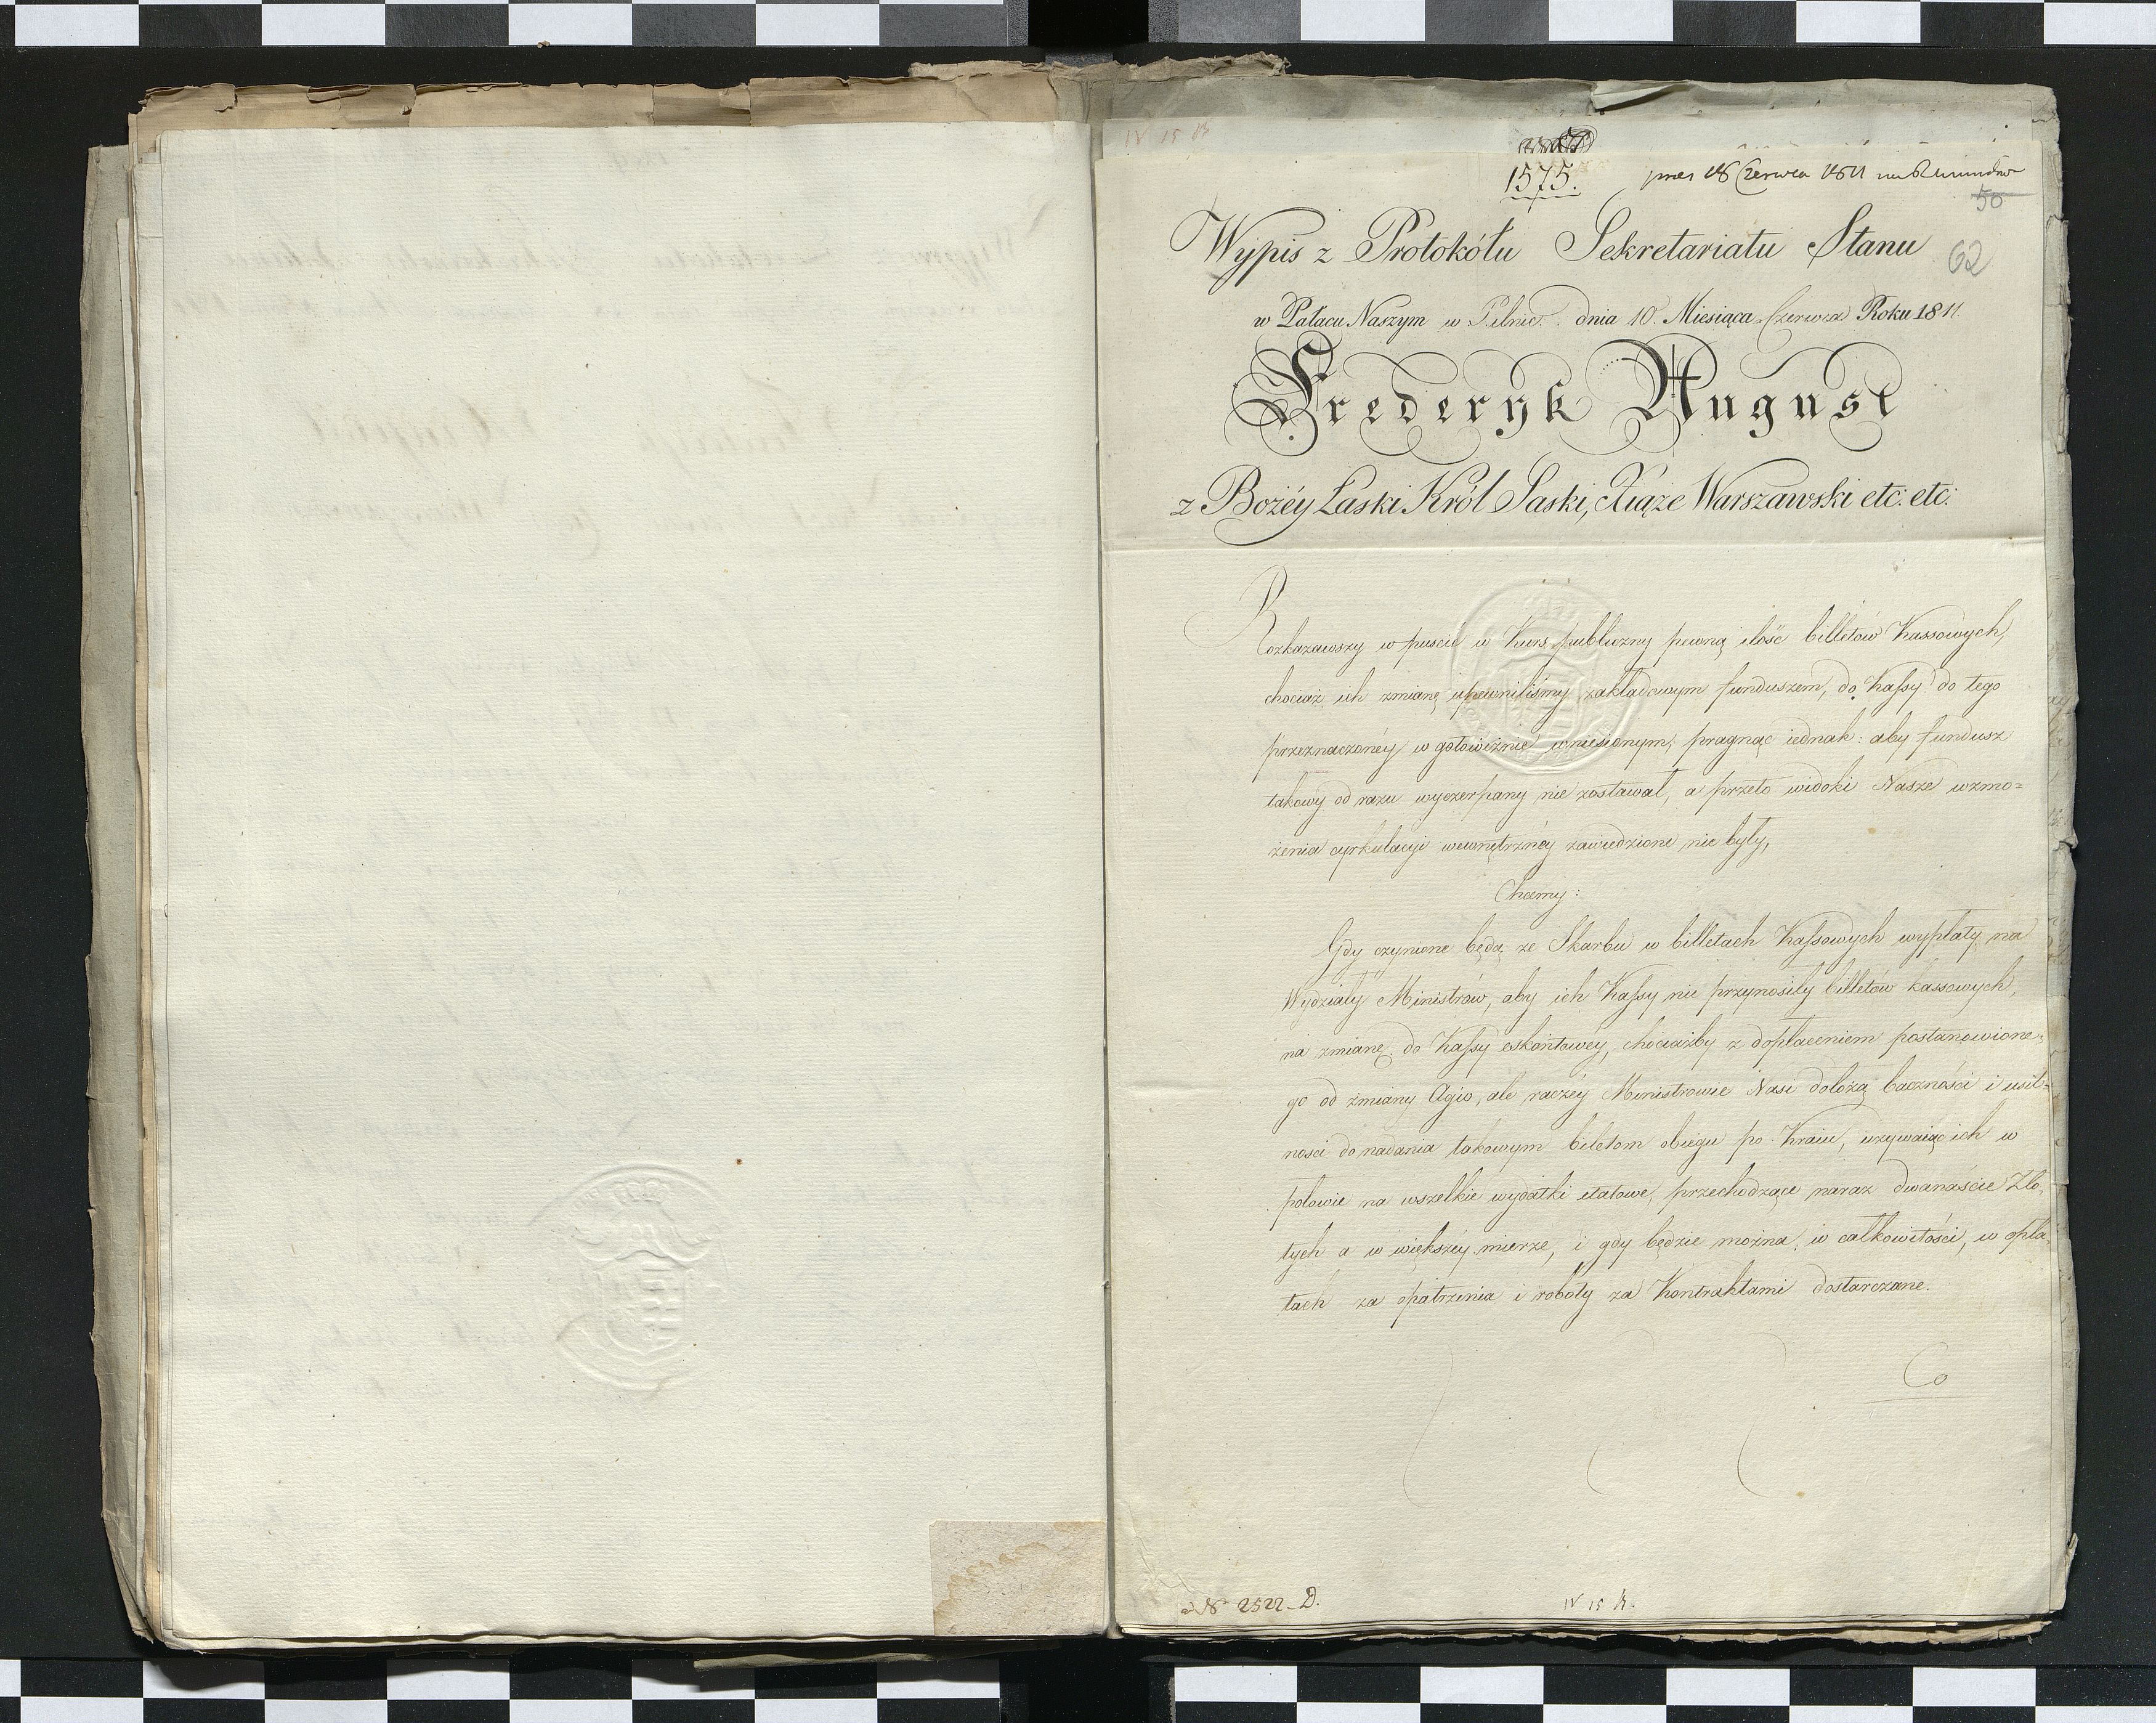 IV 15 K
1575.
pres 18 Czerwca 1811
50
Wypis z Protokółu Sekretariatu Stanu
62
w Pałacu Naszym w Pilnic. dnia 10. Miesiąca Czerwca Roku 1811.
Frederyk August
z Bożéy Łaski Król Saski, Xiąże Warszawski etc: etc:
Rozkazawszy wpuscić w Kurs publiczny pewną ilość billetów Kassowych,
chociaż ich zmianę upewniliśmy zakładowym funduszem, do Kassy do tego
przeznaczonéy w gotowiznie wniesionym, pragnąc iednak: aby fundusz
takowy od razu wyczerpany nie zostawał, a przeto widoki Nasze wzmo=
żenia cyrkulacyi wewnętrznéy zawiedzione nie były,
Chcemy:
Gdy czynione będą ze Skarbu w billetach Kassowych wypłaty na
Wydziały Ministrów, aby ich Kassy nie przynosiły billetów kassowych,
na zmianę do Kassy eskontowéy, chociażby z dopłaceniem postanowione=
go od zmiany Agio, ale raczéy Ministrowie Nasi dołożą baczności i usil=
ności do nadania takowym biletom obiegu po Kraiu, używaiąc ich w
połowie na wszelkie wydatki etatowe, przechodzące naraz dwanaście Zło=
tych a w większéy mierze, i gdy będzie można, w całkowitości, w opła=
tach za opatrzenia i roboty za Kontraktami dostarczane.
Co
N 2522_D.
IV 15 K.